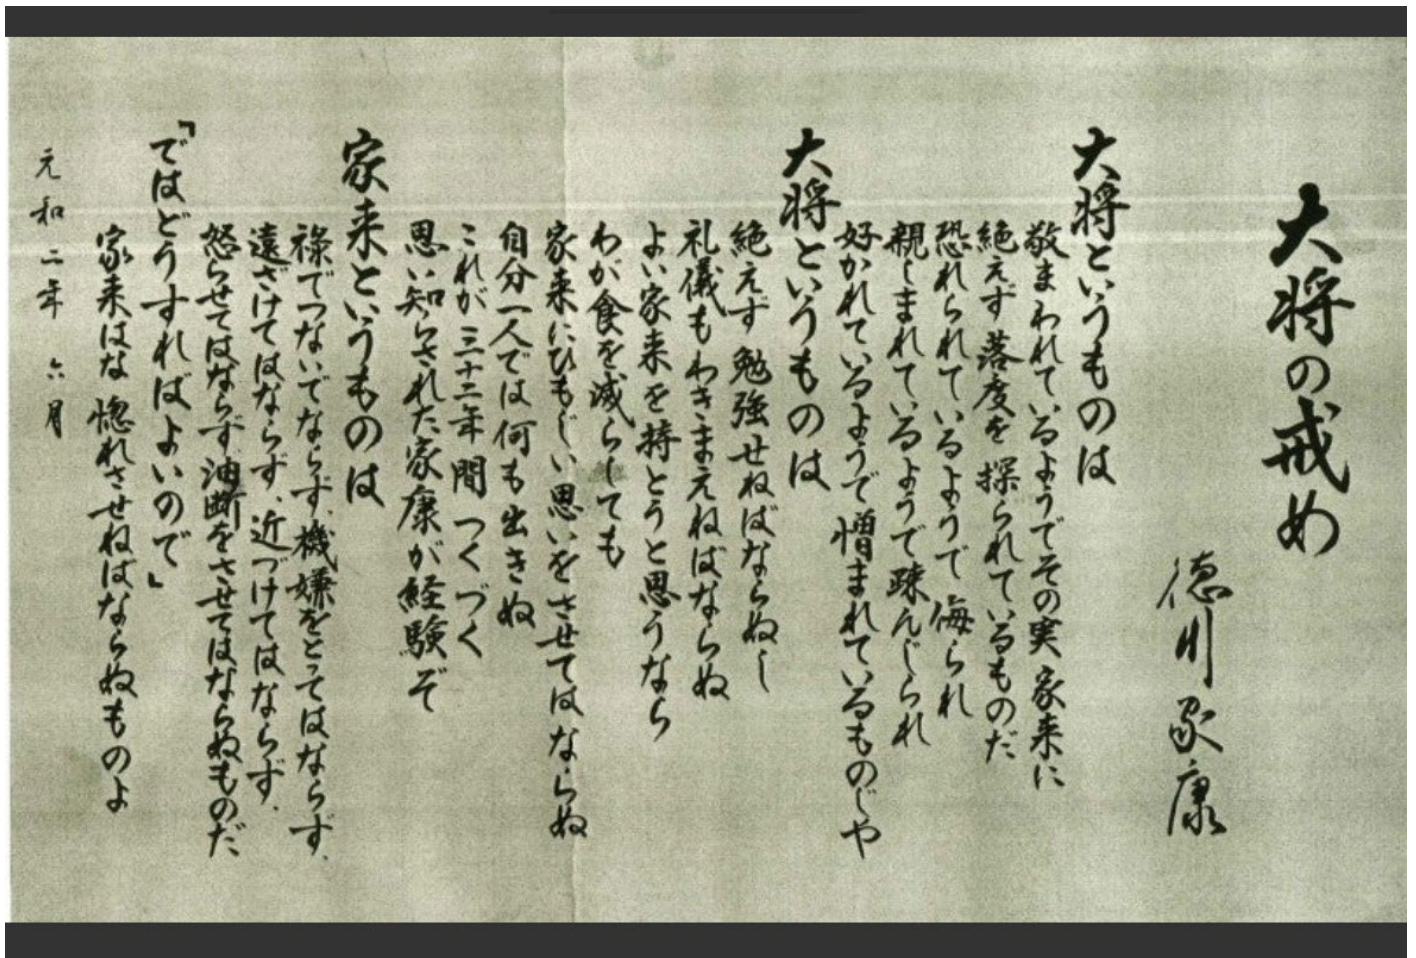 大将の戒め
徳川家康
大将というものは
敬まわれているようでその実家来に
絶えず落度を探られているものだ
恐れられているようで侮られ
親しまれているようで疎んじられ
好かれているようで憎まれているものじや
大将というものは
絶えず勉強せねばならぬし
礼儀もわきまえねばならぬ
よい家来を持とうと思うなら
わが食を減らしても
家来にひもじい思いをさせてはならぬ
自分一人では何も出きぬ
これが三十二年間つくづく
思い知らされた家康が経験ぞ
家来というものは
禄でつないでならず、機嫌をとってはならず、
遠ざけてはならず、近づけてはならず、
怒らせてはならず油断をさせてはならぬものだ
「ではどうすればよいので」
家来はな惚れさせねばならぬものよ
元和二年 六月